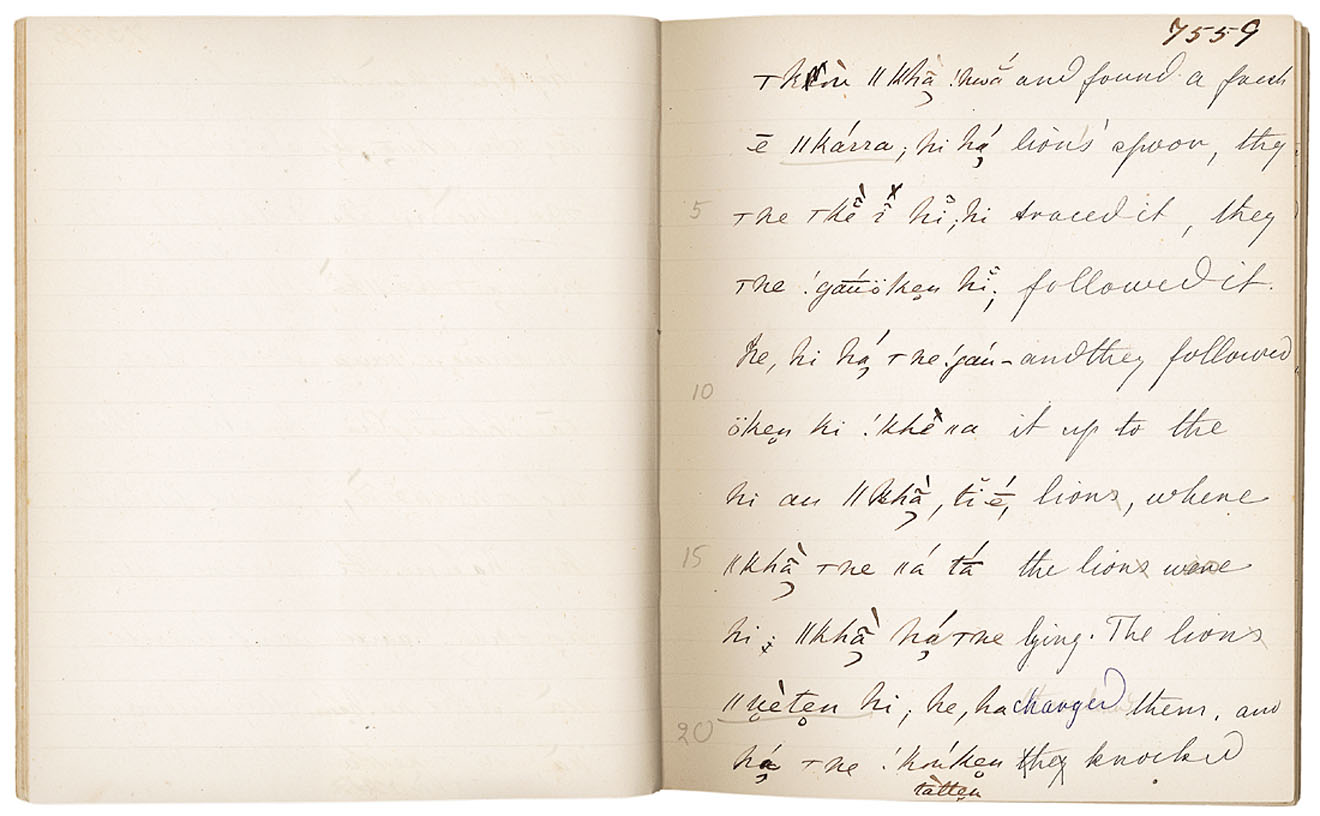 7559
ǁkhã̀ !nwá̃ and found a fresh
ē ǁkárra; hi há̦ lion's spoor, they
5 hĩ, hi traced it, they
ꞇne !gáúöken̥ hĩ; followed it.
he, hi há̦ ꞇne !gáu- and they followed
10
öken̥ hi !khè ǁa it up to the
hi au ǁkhã̀, tĭ é̄, lions, where
15 ǁkhã̀ ꞇne ǁá tá̄ the lions were
hi; ǁkhã̀ há̦ ꞇne lying. The lions
hi; he, ha changed them, and
20
há̦ ꞇne !kóu̯ken̥ they knocked
tàtten̥